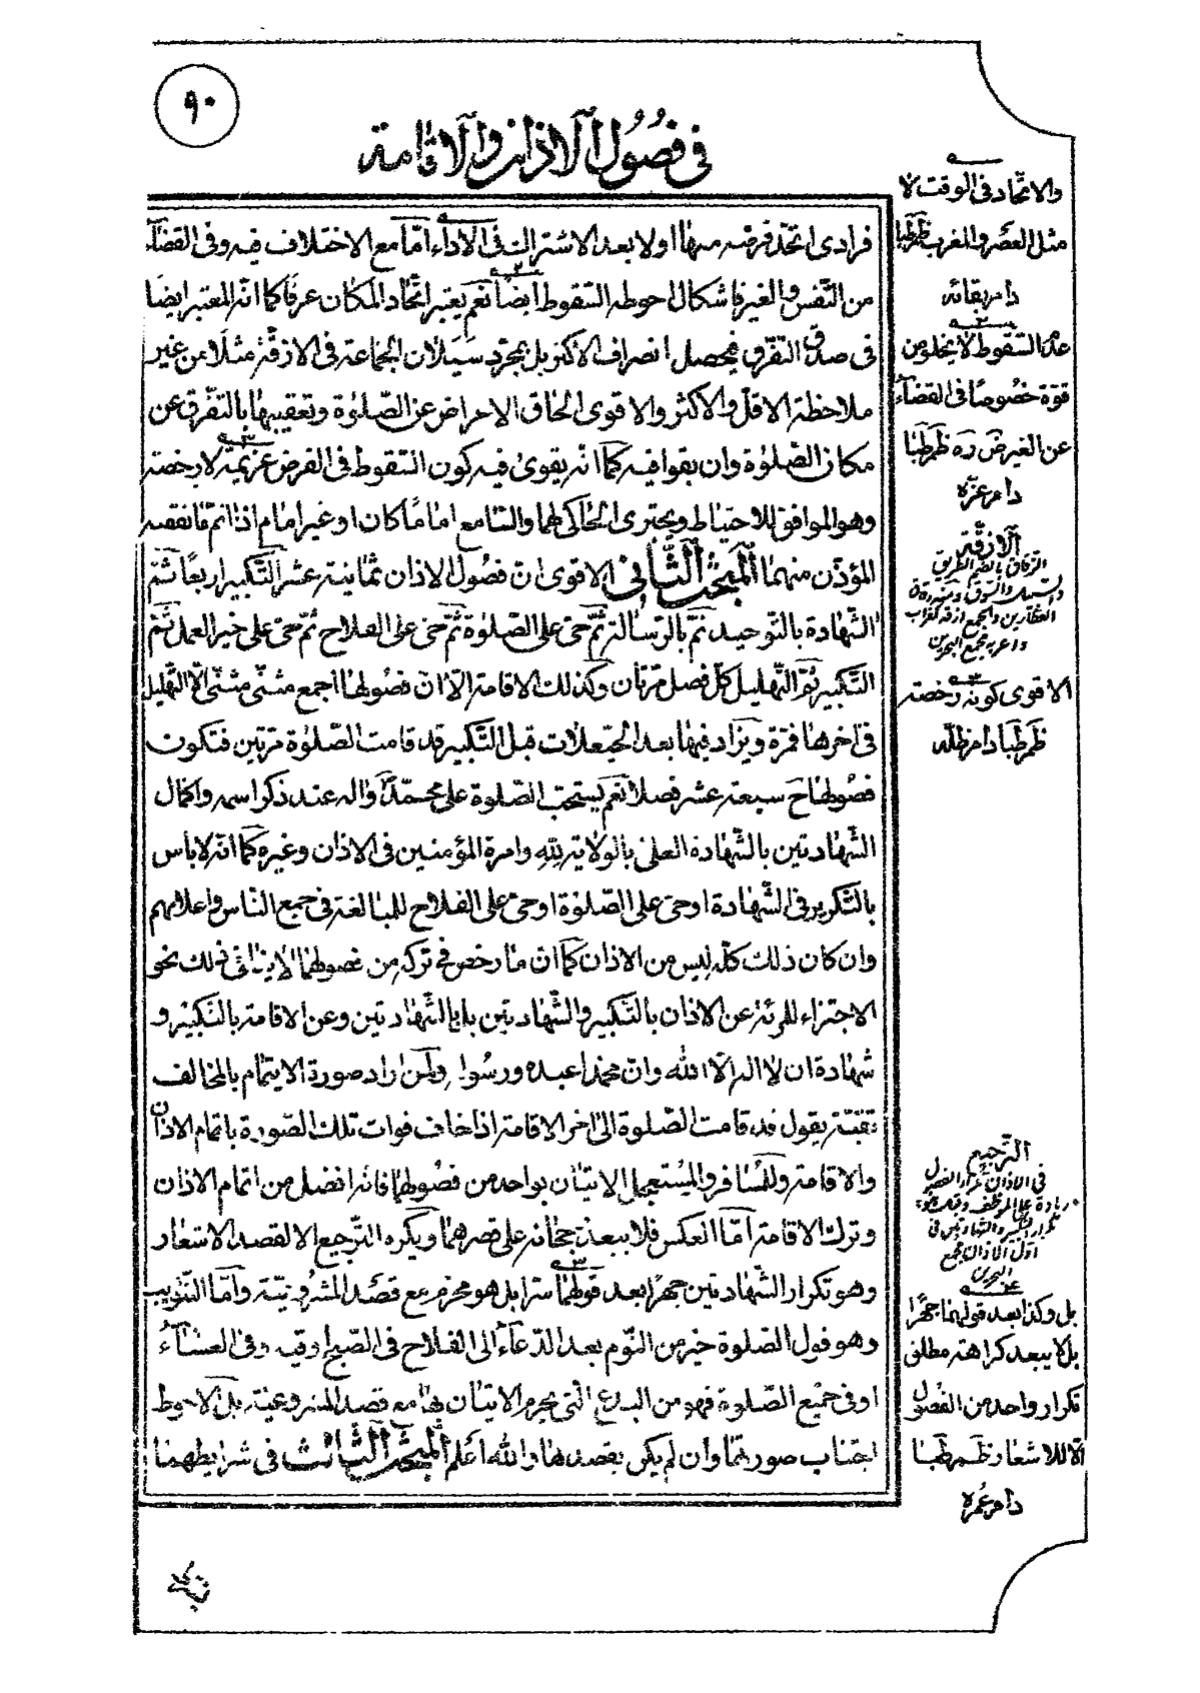 ٩٠
فی فصول الاذان والاقامة
فرادی اتحد فرضه منها اولا بعد الاشتراک فی الاداء امّا مع الاختلاف فیه وفی القضآء
من النّفس والغیر فاشکال احوطه السّقوط ایضًا نعم یعتبر اتّحاد المکان عرفًا کما انّه المعتبر ایضًا
فی صدق التفرّق فیحصل انصراف الاکثر بل بمجرّد سیلان الجماعة فی الازقّة مثلًا من غیر
ملاحظة الاقل والاکثر والاقوی الحاق الاعراض عن الصّلوة وتعقیبها بالتفرّق عن
مکان الصّلوة وان بقوا فیه کما انّه یقوی فیه کون السّقوط فی الفرض عزیمة لا رخصة
وهو الموافق للاحتیاط ویجتزی الحاکی لهما والسّامع امامًا کان او غیر امام اذا اتم ما نقصه
المؤذّن منهما المبحث الثّانی الاقوی انّ فصول الاذان ثمانیة عشر التّکبیر اربعًا ثمّ
الشّهادة بالتّوحید ثمّ بالرّسالة ثمّ حیّ علی الصّلوة ثمّ حیّ علی الفلاح ثمّ حیّ علی خیر العمل ثمّ
التّکبیر ثمّ التّهلیل کلّ فصل مرّتان وکذلک الاقامة الّا انّ فصولها اجمع مثنّی مثنّی الّا التّهلیل
فی اخرها فمرّة ویزاد فیها بعد الحیّعلات قبل التّکبیر قد قامت الصّلوة مرّتین فتکون
فصولها ح سبعة عشر فصلا نعم یستحبّ الصّلوة علی محمّد واله عند ذکر اسمه واکمال
الشّهادتین بالشّهادة لعلی بالولایة لله وامرة المؤمنین فی الاذان وغیره کما انّه لا باس
بالتّکریر فی الشّهادة او حیّ علی الصّلوة او حیّ علی الفلاح للمبالغة فی جمع النّاس واعلامهم
وان کان ذلک کلّه لیس من الاذان کما انّ ما رخص فی ترکه من فصولهما لا ینافی ذلک نحو
الاجتزاء للمرئة عن الاذان بالتّکبیر والشّهادتین بل بالشّهادتین وعن الاقامة بالتّکبیر و
شهادة ان لا اله الّا الله وانّ محمّدا عبده ورسوله ولمن اراد صورة الایتمام بالمخالف
تقیّة یقول قد قامت الصّلوة الی اخر الاقامة اذا خاف فوات تلک الصّورة باتمام الاذان
والاقامة وللمسافر والمستعجل الاتیان بواحد من فصولهما فانّه افضل من اتمام الاذان
وترک الاقامة امّا العکس فلا یبعد رجحانه علی قصرهما ویکره التّرجیع الا لقصد الاشعار
وهو تکرار الشّهادتین جهرًا بعد قولهما سرّا بل هو محرّم مع قصد المشروعیّة وامّا التّثویب
وهو قول الصّلوة خیر من النّوم بعد الدّعاء الی الفلاح فی الصّبح او فیه وفی العشآء
او فی جمیع الصّلوة فهو من البدع الّتی یحرم الاتیان بها مع قصد المشروعیّة بل الاحوط
اجتناب صورتها وان لم یکن بقصدها والله اعلم المبحث الثّالث فی شرایطهما
والاتّحاد فی الوقت لا
مثل العصر والمغرب ظم طبا
دام بقائه
عدم السّقوط لا یخلو من
قوّة خصوصًا فی القضآء
عن الغیر ض ره ظم طبا
دام عزّه
الازقّة
الزقاق بالضم الطریق
العطارین والجمع ازقة کغراب
واغربه مجمع البحرین
الاقوی کونه رخصة
ظم طبا دام ظلّه
التّرجیع
فی الاذان تکرار الفصول
زیادة علی الموظف وقیل هو
تکرار التکبیر والشهادتین فی
اوّل الاذان مجمع
البحرین
بل وکذا بعد قولهما جهرًا
بل لا یبعد کراهة مطلق
تکرار واحد من الفصول
الّا للاشعار ظم طبا
دام عمره